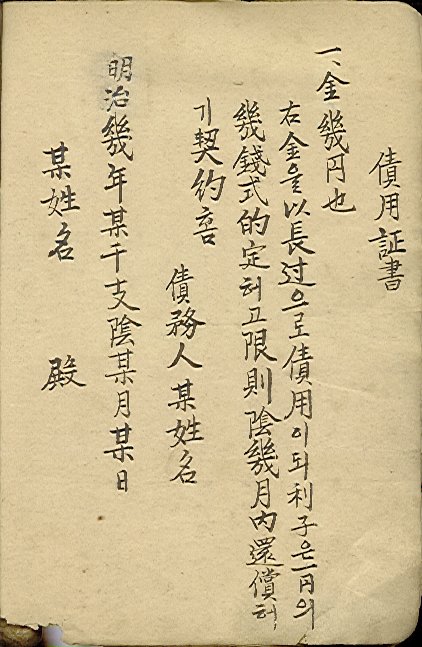 債用証書
一、金幾円也
右金을以長过으로債用이되利子은一円의
幾錢式的定허고限則陰幾月內還償허
기契約흠
債務人某姓名
明治幾年某干支陰某月某日
某姓名 殿